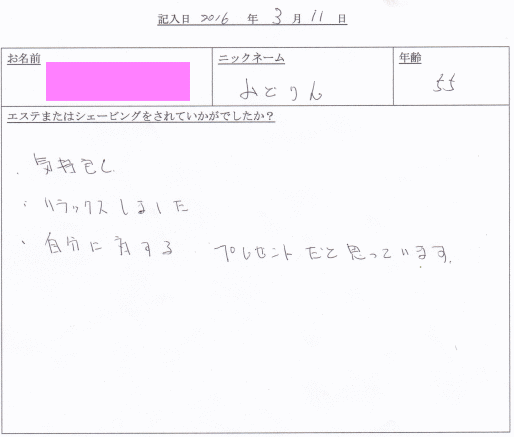 記入日 2016 年 3 月 11 日
お名前 ニックネーム 年齢
みどりん 55
エステまたはシェービングをされていかがでしたか?
・気持ちよく
・リラックスしました
・自分に対する プレゼントだと思っています。